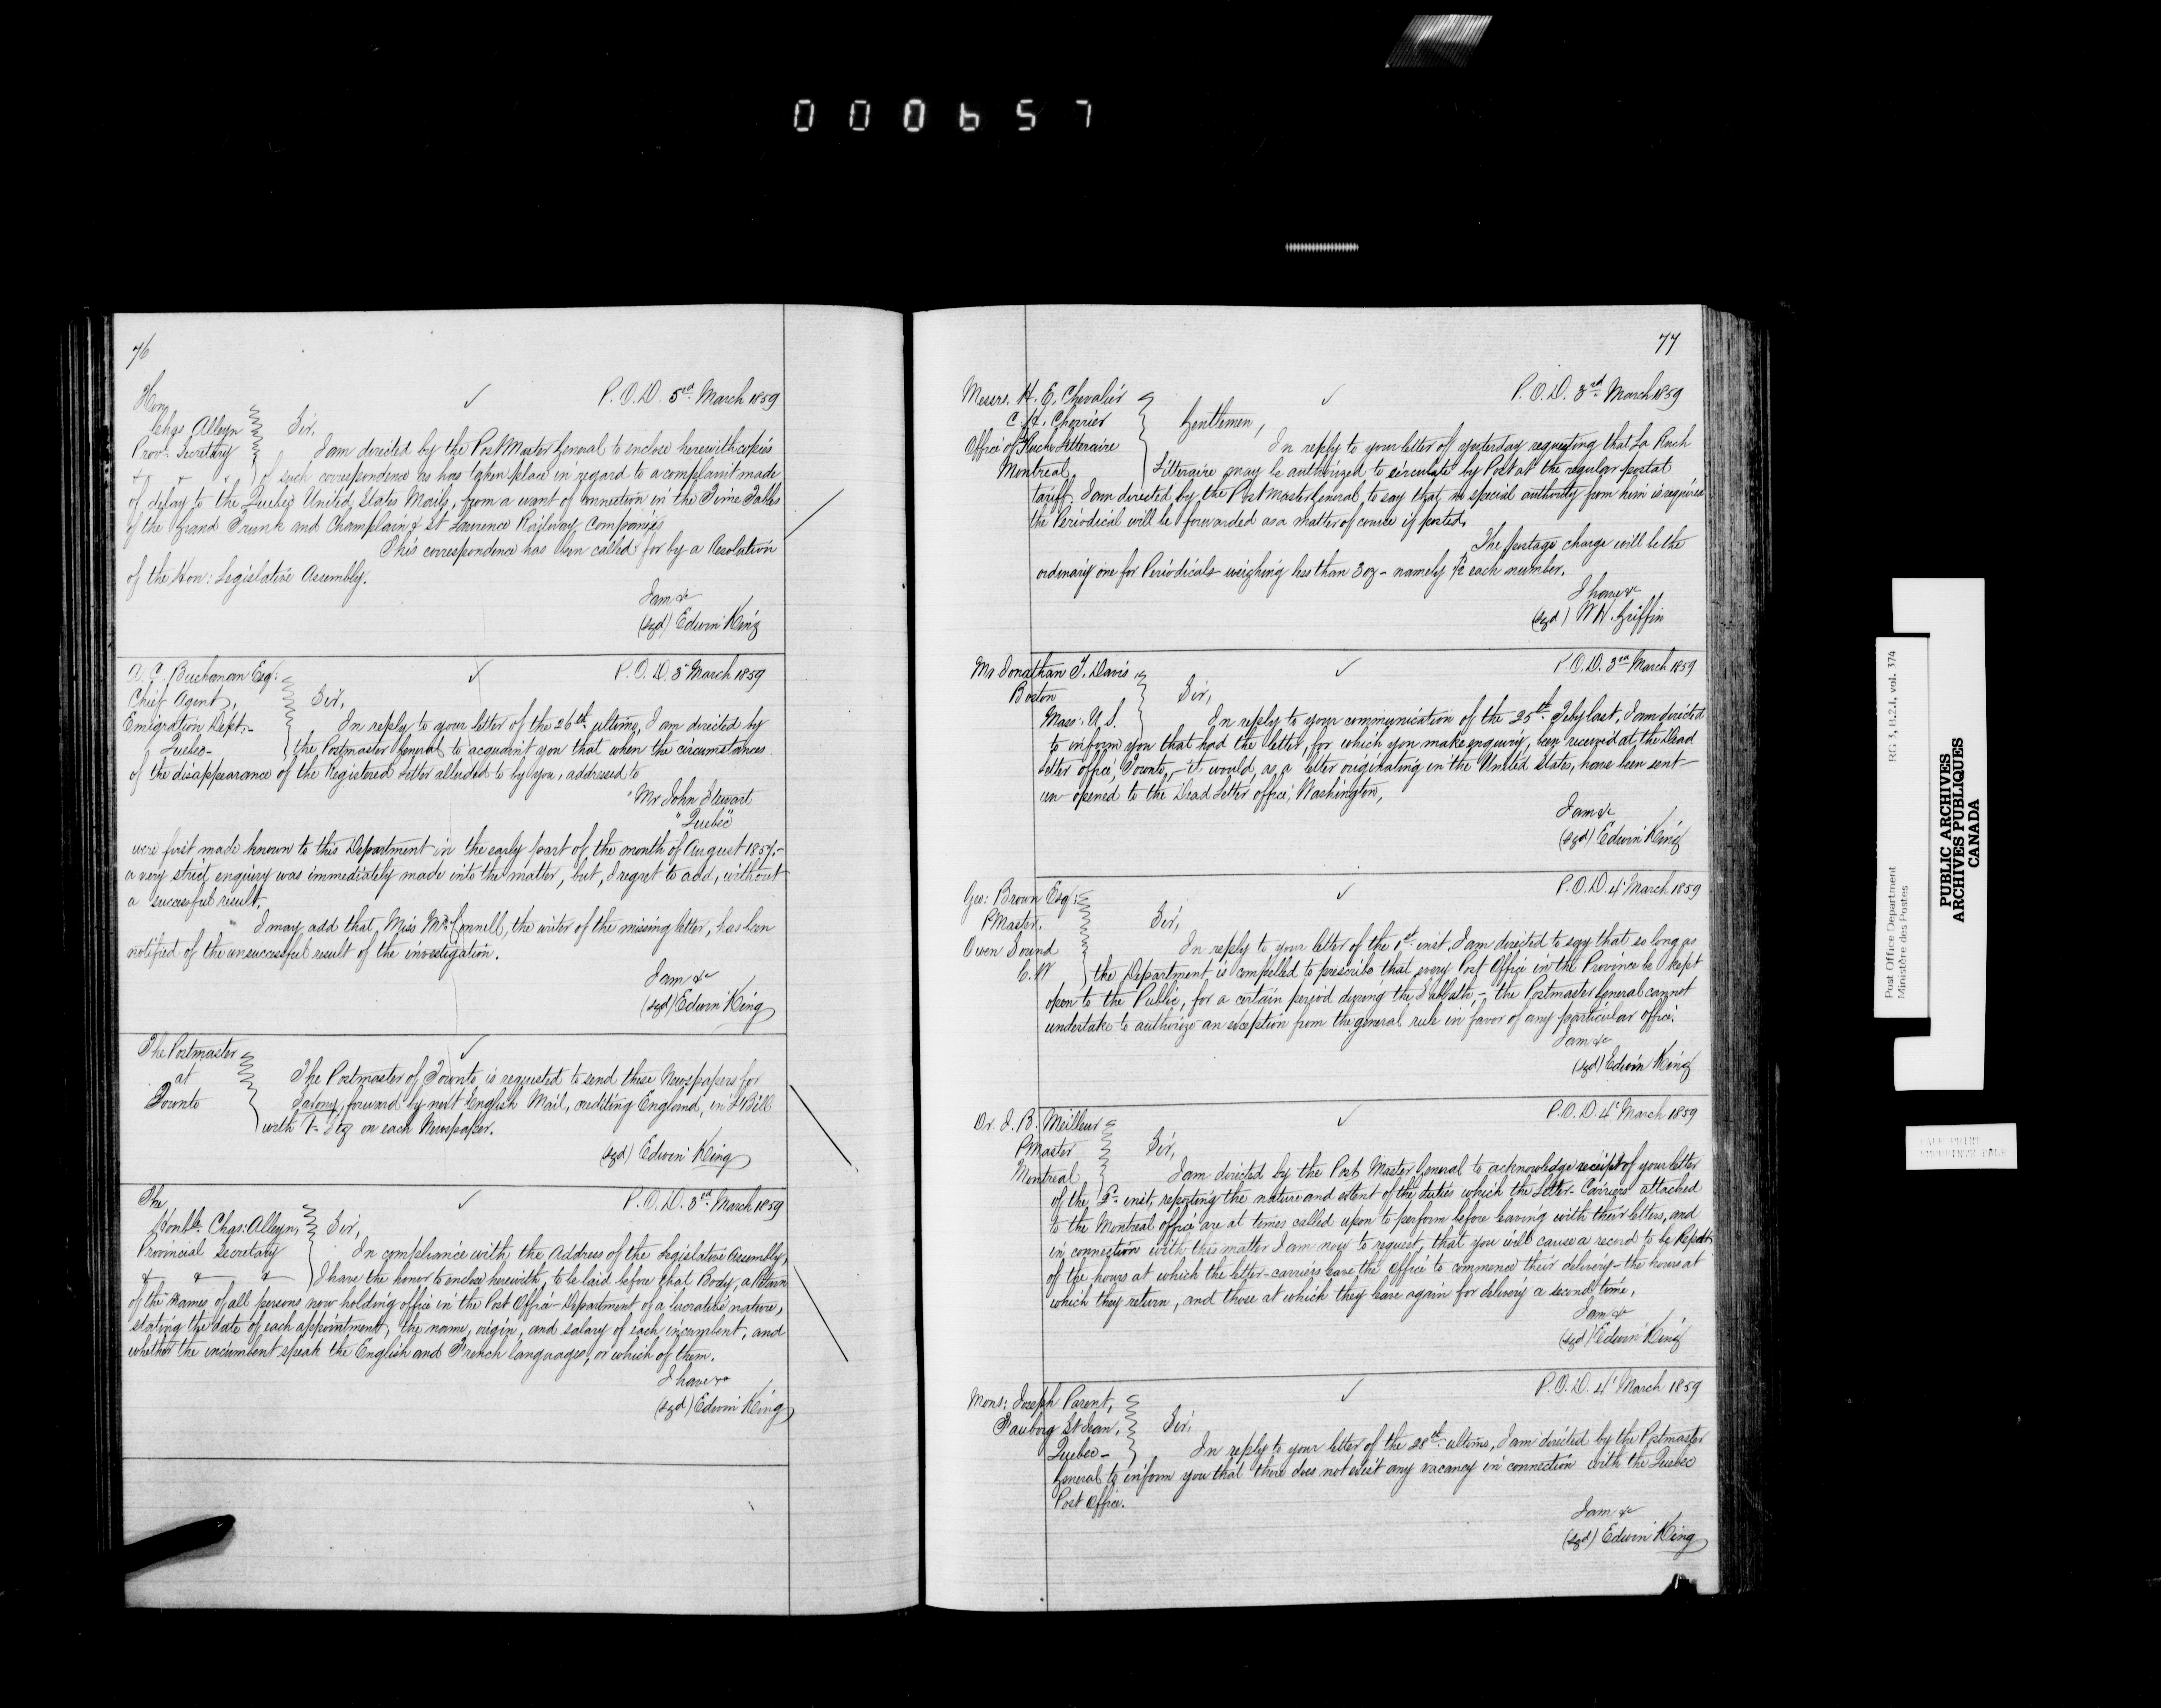 000657
76
P.O.D. 5rd March 1859
Hon
Chas Alleyn
Prov: Secretary
Sir,
I am directed by the Post Master General to enclose herewith copies
of such correspondence as has taken place in regard to a complaint made
of delay to the Quebec United States Mails, from a want of connection in the Time Tables
of the Grand Trunk and Champlain & St Laurence Railway Companies
This correspondence has been called for by a Resolution
of the Hon: Legislative Assembly.
I am &c
(sgd) Edwin King
P.O.D. 3 March 1859
A C Buchanan Esq:
Chief Agent,
Emigration Dept:-
Quebec-
Sir,
In reply to your letter of the 26th ultimo, I am directed by
the Postmaster General to acquaint you that when the circumstances
of the disappearance of the Registered Letter alluded to by you, addressed to
"Mr John Stewart
"Quebec"
were first made known to this Department in the early part of the month of August 1857.-
a very strict enquiry was immediately made into the matter, but, I regret to add, without
a successful result.
I may add that, Miss McConnell, the writer of the missing letter, has been
notified of the unsuccessful result of the investigation.
I am &c
(sgd) Edwin King
The Postmaster
at
Toronto
The Postmaster of Toronto is requested to send these Newspapers for
Saxony, forward by next English Mail, crediting England, in L Bill
with on each Newspaper.
(sgd) Edwin King
P.O.D. 3rd March 1859
The
Honble. Chas: Alleyn,
Provincial Secretary
& & &
Sir,
In compliance with the Address of the Legislative Assembly,
I have the honor to enclose herewith, to be laid before that Body, a Return
of the names of all persons now holding office in the Post Office Department of a lucrative nature,
stating the date of each appointment, the name, origin, and salary of each incumbent, and
whether the incumbent speak the English and French languages, or which of them.
I have &c
(sgd) Edwin King
77
P.O.D. 3rd March 1859
Messrs. H. E. Chevalier
C. A. Cherrier
Office of Ruche Litteraire
Montreal,
Gentlemen,
In reply to your letter of yesterday requesting that La Ruch
Litteraire may be authorized to circulate by Post at the regular postal
tariff. I am directed by the Post Master General to say that no special authority from him is required
the Periodical will be forwarded as a matter of course if posted.
The postage charge will be the
ordinary one for Periodicals weighing less than 3 oz - namely each number.
I have &c
(sgd) W H. Griffin
P.O.D. 3rd March 1859
Mr Jonathan T. Davis
Boston
Mass: U.S.
Sir,
In reply to your communication of the 25th Feby last, I am directed
to inform you that had the letter, for which you make enquiry, been received at the Dead
Letter office, Toronto,- it would, as a letter originating in the United States, have been sent
un opened to the Dead Letter office, Washington,
I am &c
(sgd) Edwin King
P.O.D. 4 March 1859
Geo: Brown Esq:
PMaster,
Owen Sound
C.W
Sir,
In reply to your letter of the 1st inst. I am directed to say that so long as
the Department is compelled to prescribe that every Post Office in the Province be kept
open to the Public, for a certain period during the Sabbath,- the Postmaster General cannot
undertake to authorize an exception from the general rule in favor of any particular office.
I am &c
(sgd) Edwin King
P.O.D. 4 March 1859
Dr. J. B. Meilleur
PMaster
Montreal
Sir,
I am directed by the Post Master General to acknowledge receipt of your letter
of the inst, reporting the nature and extent of the duties which the Letter-Carriers attached
to the Montreal office are at times called upon to perform before leaving with their letters, and
in connection with this matter I am now to request, that you will cause a record to be kept
of the hours at which the letter-carriers leave the office to commence their delivery - the hours at
which they return, and those at which they leave again for delivery a second time,
I am &c
(sgd) Edwin King
P.O.D. 4 March 1859
Mons: Joseph Parent,
Fauborg St Jean,
Quebec-
Sir,
In reply to your letter of the 28th ultimo, I am directed by the Postmaster
General to inform you that there does not exist any vacancy in connection with the Quebec
Post Office.
I am &c
(sgd) Edwin King
Post Office Department RG 3, B.2.1, vol. 374
Ministère des Postes
PUBLIC ARCHIVES
ARCHIVES PUBLIQUES
CANADA